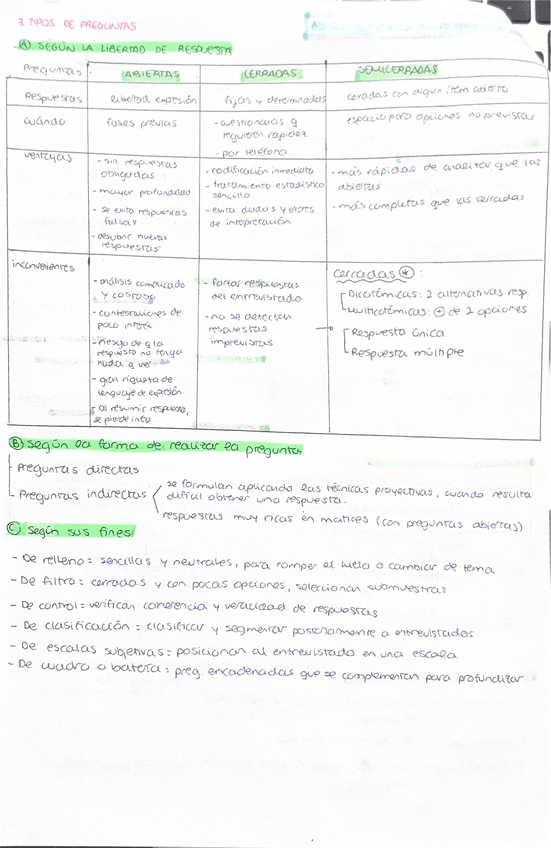 3. TIPOS DE PREGUNTAS
Ⓐ SEGÚN LA LIBERTAD DE RESPUESTA
Preguntas ABIERTAS CERRADAS SEMICERRADAS
Respuestas libertad expresión fijas y determinadas cerradas con algún ítem abierto
cuándo fases previas - cuestionarios q requieren rapidez espacio para opciones no previstas
- por teléfono
ventajas
- sin respuestas
obligadas
- mayor profundidad
- se evita respuestas
falsas
- descubrir nuevas
respuestas
- codificación inmediata
- tratamiento estadístico
sencillo
- evita dudas y errores
de interpretación
- más rápidas de analizar que las
abiertas
- más completas que las cerradas
inconvenientes
- análisis complicado
y costoso
- contestaciones de
poco interés
- Riesgo de q la
respuesta no tenga
nada q ver
- gran riqueza de
lenguaje de expresión
- Al resumir respuesta,
se pierde info
- forzar respuestas
del entrevistado
- no se detectan
respuestas
imprevistas
cerradas ⊕:
Dicotómicas: 2 alternativas resp.
Multicotómicas: ⊕ de 2 opciones
Respuesta única
Respuesta múltiple
Ⓑ Según la forma de realizar la pregunta
- Preguntas directas
- Preguntas indirectas
se formulan aplicando las técnicas proyectivas, cuando resulta
difícil obtener una respuesta.
respuestas muy ricas en matices (con preguntas abiertas)
Ⓒ Según sus fines
- De relleno = sencillas y neutrales, para romper el hielo o cambiar de tema
- De filtro = cerradas y con pocas opciones, seleccionan submuestras
- De control = verifican coherencia y veracidad de respuestas
- De clasificación = clasificar y segmentar posteriormente a entrevistados
- De escalas subjetivas = posicionan al entrevistado en una escala
- De cuadro o batería = preg. encadenadas que se complementan para profundizar